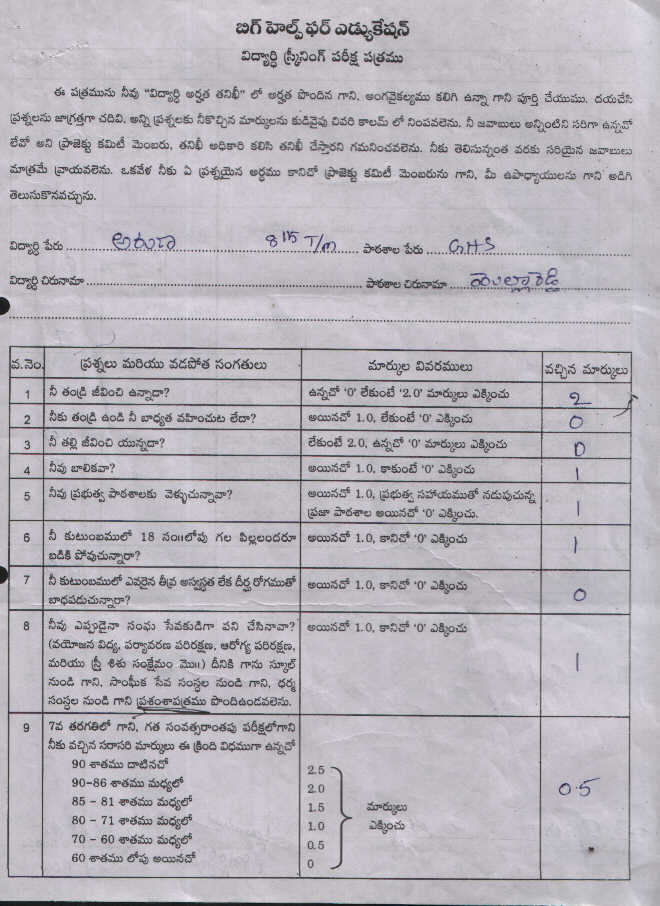 బిగ్ హెల్ప్ ఫర్ ఎడ్యుకేషన్
విద్యార్ధి స్క్రీనింగ్ పరీక్ష పత్రము
ఈ పత్రమును నీవు "విద్యార్ధి అర్హత తనిఖీ" లో అర్హత పొందిన గాని, అంగవైకల్యము కలిగి ఉన్నా గాని పూర్తి చేయుము. దయచేసి
ప్రశ్నలను జాగ్రత్తగా చదివి. అన్ని ప్రశ్నలకు నీకొచ్చిన మార్కులను కుడివైపు చివరి కాలమ్ లో నింపవలెను. నీ జవాబులు అన్నింటిని సరిగా ఉన్నవో
లేవో అని ప్రాజెక్టు కమిటీ మెంబరు, తనిఖీ అధికారి కలిసి తనిఖీ చేస్తారని గమనించవలెను. నీకు తెలిసున్నంత వరకు సరియైన జవాబులు
మాత్రమే వ్రాయవలెను. ఒకవేళ నీకు ఏ ప్రశ్నయైన అర్ధము కానిచో ప్రాజెక్టు కమిటీ మెంబరును గాని, మీ ఉపాధ్యాయులను గాని అడిగి
తెలుసుకొనవచ్చును.
విద్యార్ధి పేరు 8th T/m పాఠశాల పేరు GHS
విద్యార్ధి చిరునామా పాఠశాల చిరునామా
వ.నెం. ప్రశ్నలు మరియు వడపోత సంగతులు మార్కుల వివరములు వచ్చిన మార్కులు
1 నీ తండ్రి జీవించి ఉన్నాడా? ఉన్నచో '0' లేకుంటే '2.0' మార్కులు ఎక్కించు 2
2 నీకు తండ్రి ఉండి నీ బాధ్యత వహించుట లేదా? అయినచో 1.0, లేకుంటే '0' ఎక్కించు 0
3 నీ తల్లి జీవించి యున్నదా? లేకుంటే 2.0, ఉన్నచో '0' మార్కులు ఎక్కించు 0
4 నీవు బాలికవా? అయినచో 1.0, కాకుంటే '0' ఎక్కించు 1
5 నీవు ప్రభుత్వ పాఠశాలకు వెళ్ళుచున్నావా? అయినచో 1.0, ప్రభుత్వ సహాయముతో నడుపుచున్న
ప్రజా పాఠశాల అయినచో '0' ఎక్కించు. 1
6 నీ కుటుంబములో 18 సం॥లోపు గల పిల్లలందరూ అయినచో 1.0, కానిచో '0' ఎక్కించు 1
బడికి పోవుచున్నారా?
7 నీ కుటుంబములో ఎవరైన తీవ్ర అస్వస్థత లేక దీర్ఘ రోగముతో అయినచో 1.0, కానిచో '0' ఎక్కించు 0
బాధపడుచున్నారా?
8 నీవు ఎప్పుడైనా సంఘ సేవకుడిగా పని చేసినావా? అయినచో 1.0, కానిచో '0' ఎక్కించు
(వయోజన విద్య, పర్యావరణ పరిరక్షణ, ఆరోగ్య పరిరక్షణ,
మరియు స్త్రీ శిశు సంక్షేమం మొ॥) దీనికి గాను స్కూల్ 1
నుండి గాని, సాంఘిక సేవ సంస్థల నుండి గాని, ధర్మ
సంస్థల నుండి గాని ప్రశంశాపత్రము పొందిఉండవలెను.
9 7వ తరగతిలో గాని, గత సంవత్సరాంతపు పరీక్షలోగాని
నీకు వచ్చిన సరాసరి మార్కులు ఈ క్రింది విధముగా ఉన్నచో
90 శాతము దాటినచో 2.5
90-86 శాతము మధ్యలో 2.0 0.5
85 - 81 శాతము మధ్యలో 1.5 మార్కులు
80 - 71 శాతము మధ్యలో 1.0 ఎక్కించు
70 - 60 శాతము మధ్యలో 0.5
60 శాతము లోపు అయినచో 0